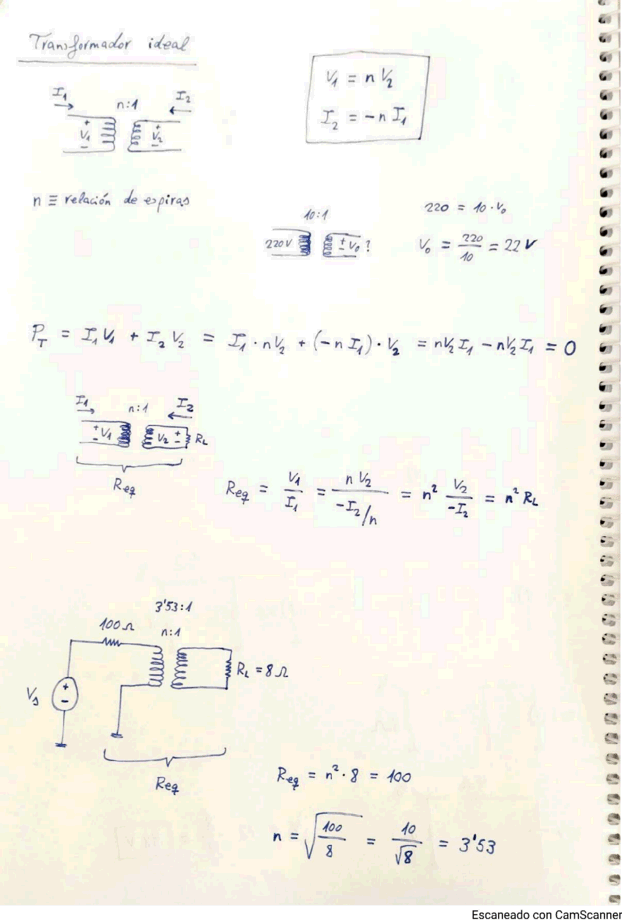 Transformador ideal
I₁ n:1 I₂
+ V₁ - + V₂ -
V₁ = n V₂
I₂ = -n I₁
n ≡ relación de espiras
10:1
220V + V₀ - ?
220 = 10·V₀
V₀ = 220/10 = 22 V
P_T = I₁ V₁ + I₂ V₂ = I₁·nV₂ + (-n I₁)·V₂ = nV₂I₁ - nV₂I₁ = 0
I₁ n:1 I₂
+ V₁ - V₂ + - R_L
Req
Req = V₁/I₁ = n V₂/(-I₂/n) = n² V₂/-I₂ = n² R_L
3'53:1
100Ω n:1
V_s + - R_L = 8Ω
Req
Req = n²·8 = 100
n = √(100/8) = 10/√8 = 3'53
Escaneado con CamScanner